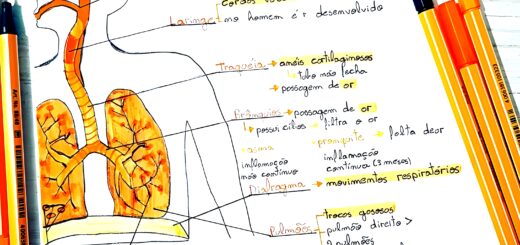 cordas vocais
Laringe → no homem é + desenvolvido
Traqueia → anéis cartilaginosos
↳ tubo não fecha
→ passagem de ar
Brônquios → passagem de ar
↳ possui cílios → filtra o ar
→ asma
inflamação
não contínua
→ bronquite → falta de ar
inflamação
contínua (3 meses)
Diafragma → movimentos respiratórios
Pulmões
→ trocas gasosas
→ pulmão direito >
2 pulmões